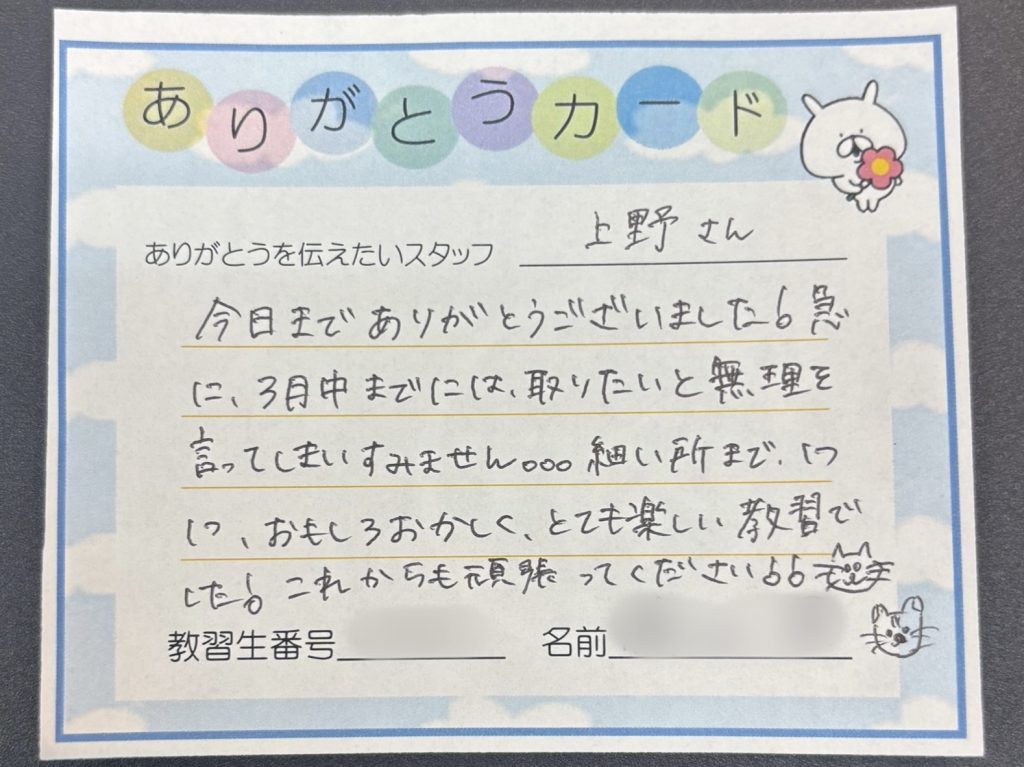 ありがとうカード
ありがとうを伝えたいスタッフ 上野さん
今日までありがとうございました! 急
に、3月中までには、取りたいと無理を
言ってしまいすみません。。。細い所まで、1つ
1つ、おもしろおかしく、とても楽しい教習で
した! これからも頑張ってください!!
教習生番号 名前